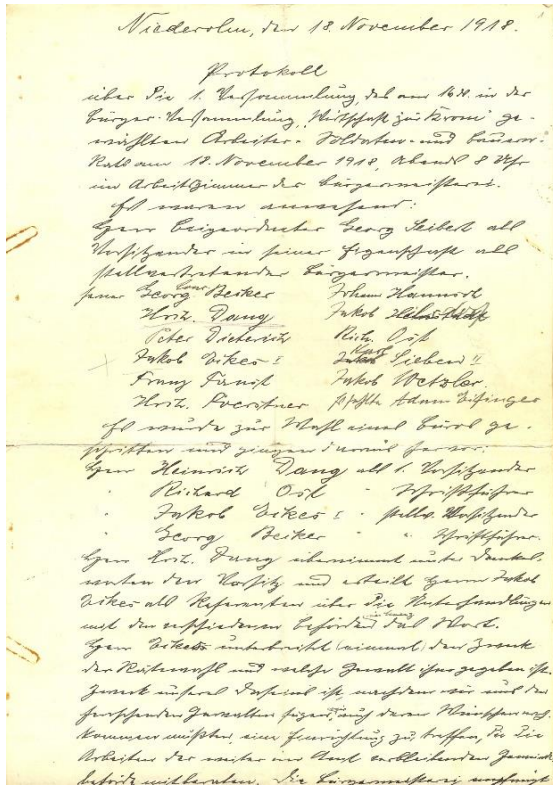 Niederolm, den 18. November 1918.
Protokoll
über die 1. Versammlung, des am 16. ds. in der
Bürger-Versammlung, "Wirtschaft zur Krone" ge-
wählten Arbeiter- Soldaten- und Bauern-
Rats am 18. November 1918, Abends 8 Uhr
im Arbeitszimmer der Bürgermeisterei.
Es waren anwesend:
Herr Beigeordneter Georg Seibert als
Vorsitzender in seiner Eigenschaft als
stellvertretender Bürgermeister.
ferner Georg Becker Johann Hammen
Hrch. Dang Jakob
Peter Dieterich Rich. Ost
Jakob Eikes I Karl Sieben II
Franz Faust Jakob Wetzler.
Hrch. Foerstner es fehlte Adam Eifinger
Es wurde zur Wahl eines Büros ge-
schritten und gingen daraus hervor:
Herr Heinrich Dang als 1. Vorsitzender
" Richard Ost " Schriftführer
" Jakob Eikes I " stellv. Vorsitzender
" Georg Becker " " Schriftführer.
Herr Hrch. Dang übernimmt unter Dankes-
worten den Vorsitz und erteilt Herrn Jakob
Eikes als Referenten über die Unterhandlungen
mit den verschiedenen Behörden das Wort.
Herr Eikes unterbreitet (einmal) den Zweck
der Rätewahl und welche Gewalt ihm gegeben ist.
Zweck unseres Daseins ist, nachdem wir uns den
herrschenden Gewalten fügen, auch deren Wünschen nach-
kommen müßten, eine Einrichtung zu treffen, die die
Arbeiten der weiter im Amt verbleibenden Gemeinde-
behörde mitberaten. Die Bürgermeisterei empfängt